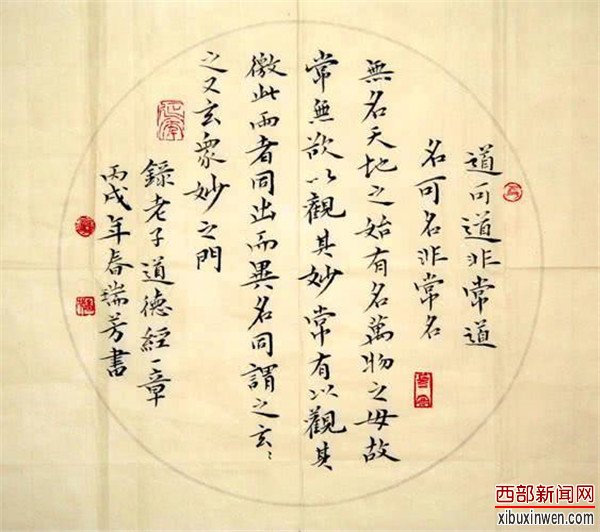 道可道非常道
名可名非常名
無名天地之始有名萬物之母故
常無欲以觀其妙常有以觀其
徼此兩者同出而異名同謂之玄〻
之又玄衆妙之門
錄老子道德經一章
丙戌年春瑞芳書
西部新闻网
xibuxinwen.com